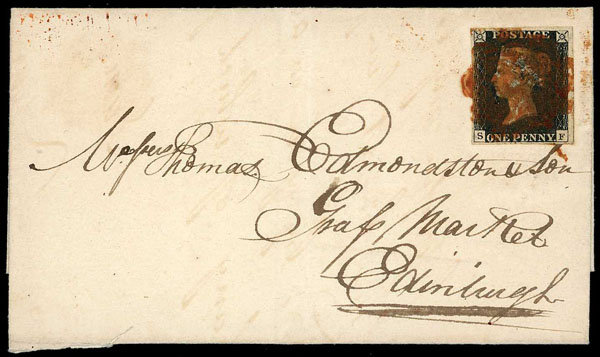 POSTAGE
S ONE PENNY F
Messrs Thomas Edmondston & Son
Grass Market
Edinburgh